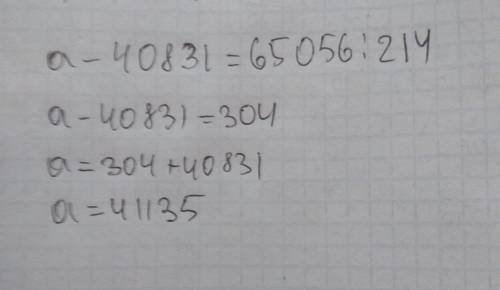 a - 40831 = 65056 : 214
a - 40831 = 304
a = 304 + 40831
a = 41135